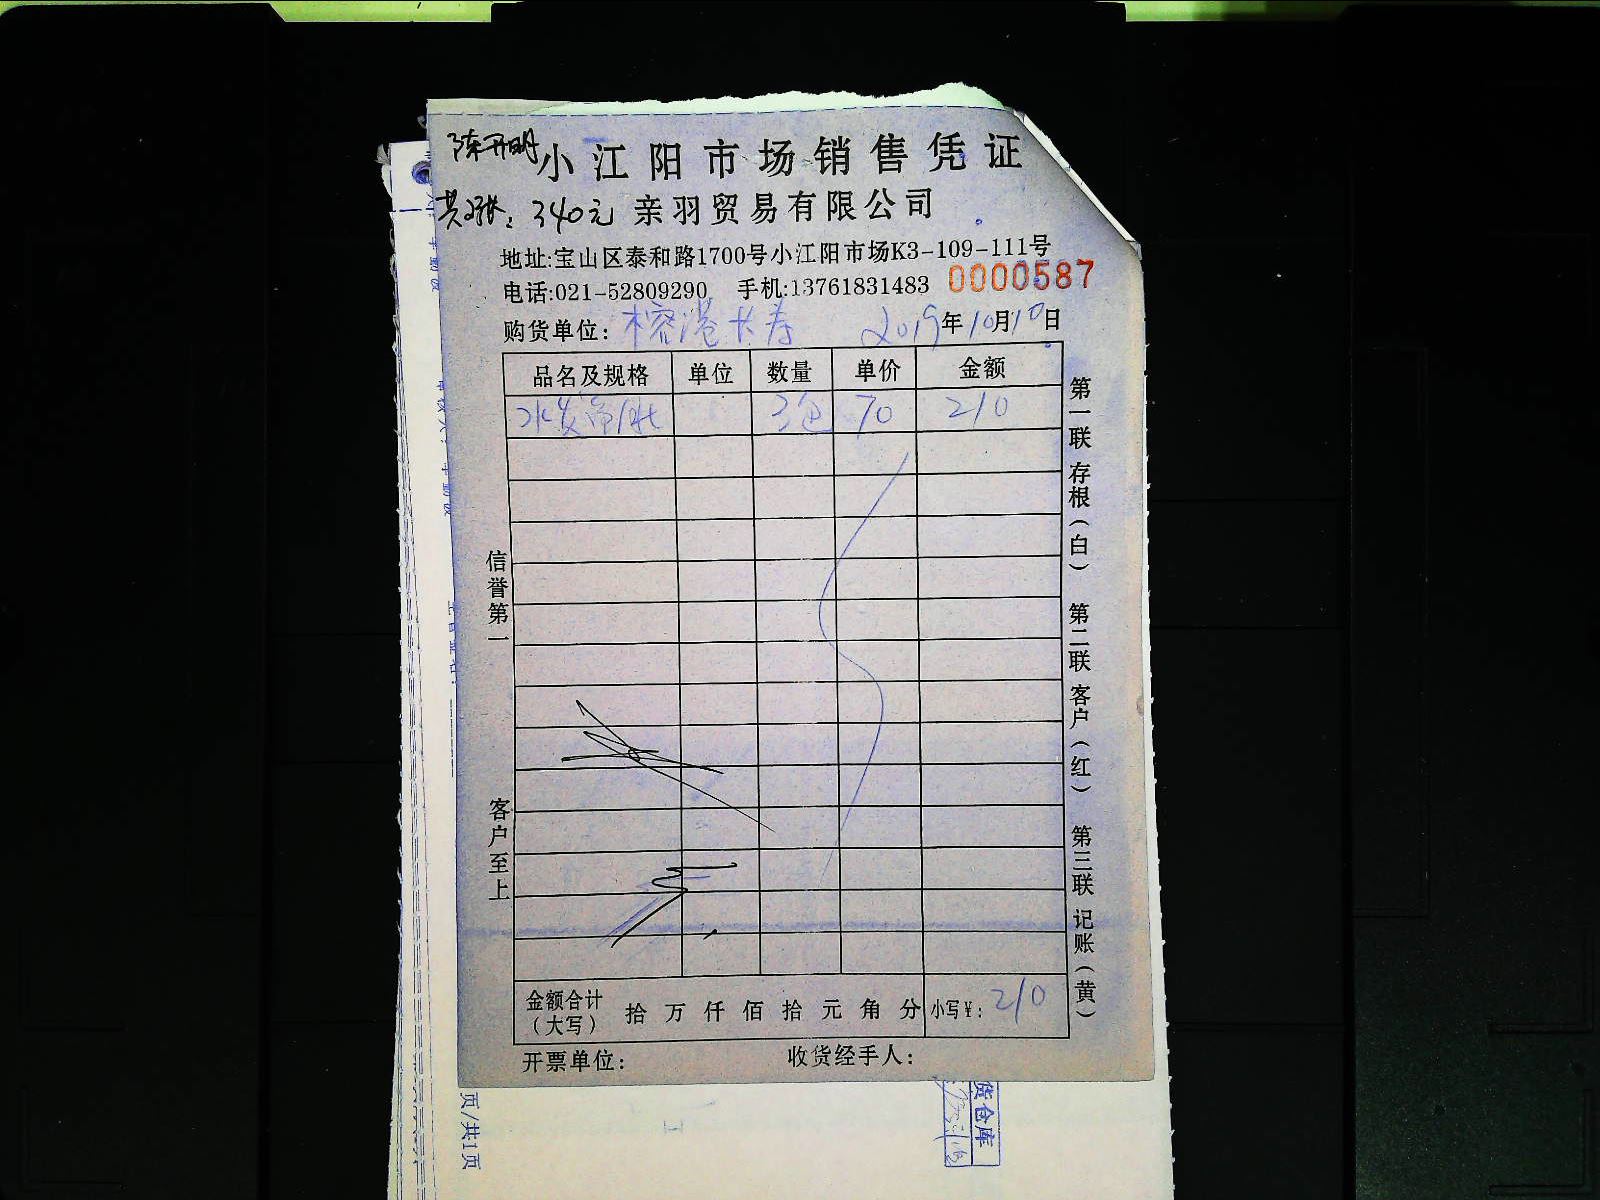 陈开明
小江阳市场销售凭证
共2张：340元 亲羽贸易有限公司
地址:宝山区泰和路1700号小江阳市场K3-109-111号
电话:021-52809290 手机:13761831483 0000587
购货单位: 榕港长寿 2019年10月10日
品名及规格 单位 数量 单价 金额
水发 3包 70 210
第一联 存根（白） 第二联 客户（红） 第三联 记账（黄）
信誉第一
客户至上
金额合计（大写） 拾 万 仟 佰 拾 元 角 分 小写¥: 210
开票单位: 收货经手人:
页/共1页
货仓库